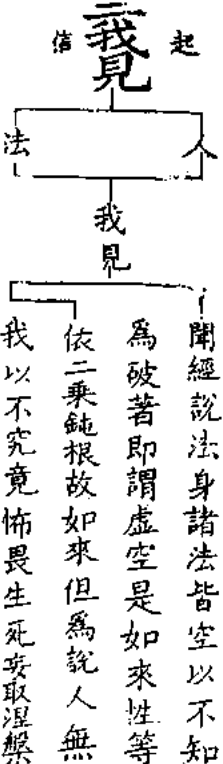 二我見
起信
人
法
我見
聞經說法身諸法皆空以不知
為破著即謂虛空是如來性等
依二乘鈍根故如來但為說人無
我以不究竟怖畏生死妄取涅槃